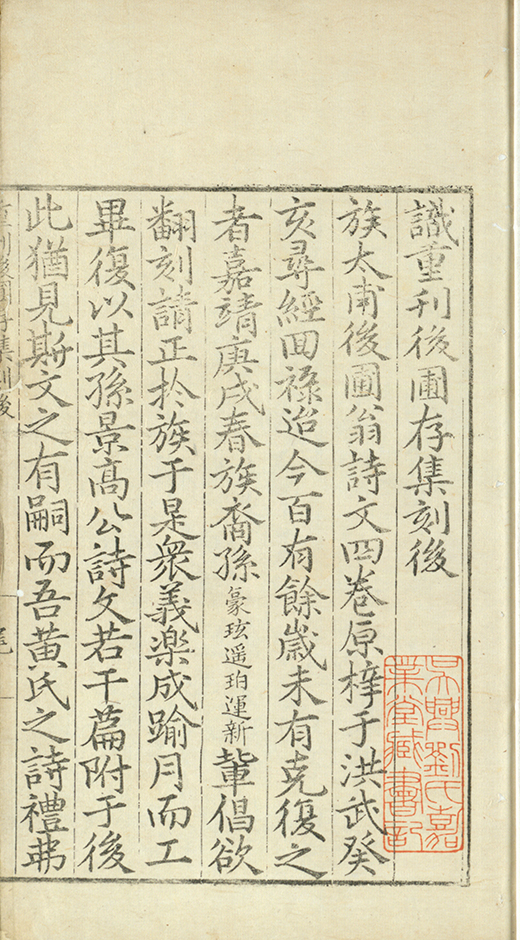 識重刊後圃存集刻後
族太甫後圃翁詩文四卷原梓于洪武癸
亥尋經回祿迨今百有餘歲未有克復之
者嘉靖庚戌春族裔孫豪玹遥珀運新軰倡欲
翻刻請正於族于是衆義楽成踰月而工
畢復以其孫景高公詩文若干篇附于後
此猶見斯文之有嗣而吾黄氏之詩禮弗
重刊後圃存集刻後
吳興劉氏嘉
業堂藏書記